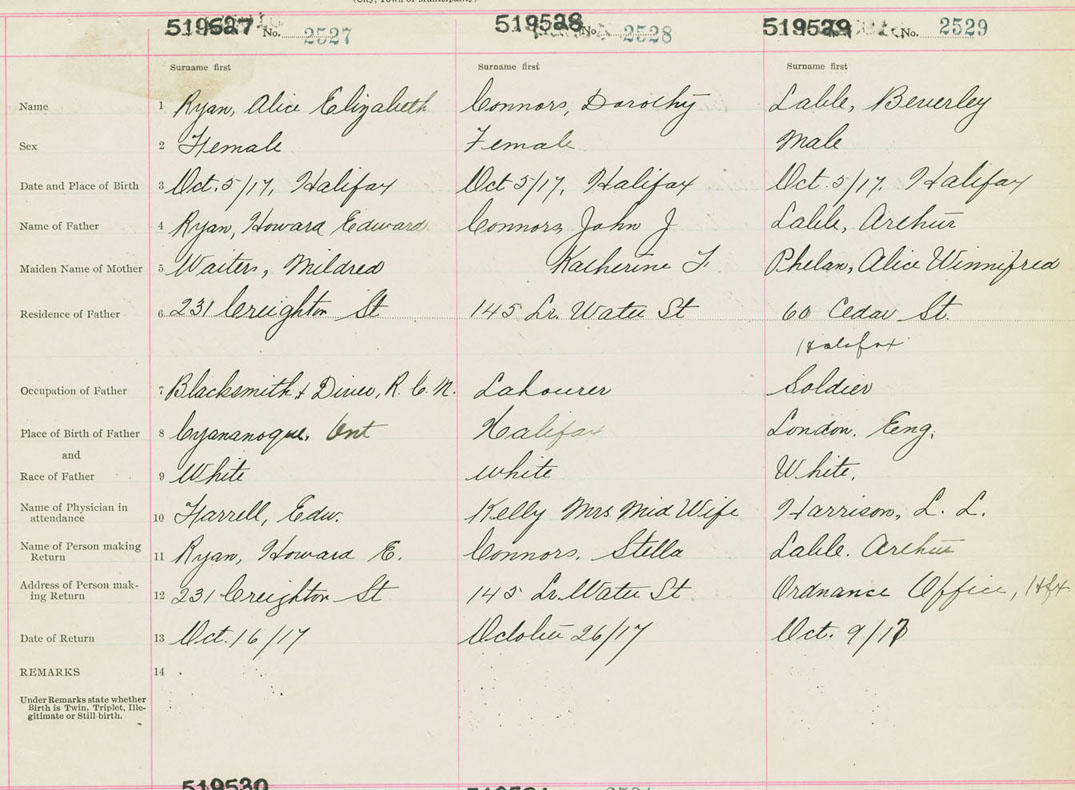 (City, Town or Municipality)
519527 No. 2527
519528 No. 2528
519529 No. 2529
Surname first Surname first Surname first
Name 1 Ryan, Alice Elizabeth Connors, Dorothy Lable, Beverley
Sex 2 Female Female Male
Date and Place of Birth 3 Oct. 5/17, Halifax Oct 5/17, Halifax Oct. 5/17. Halifax
Name of Father 4 Ryan, Howard Edward Connors, John J Lable, Arthur
Maiden Name of Mother 5 Waiters, Mildred Katherine F Phelan, Alice Winnifred
Residence of Father 6 231 Creighton St 145 Lr. Water St 60 Cedar St.
Halifax
Occupation of Father 7 Blacksmith & Diver, R. C. N. Labourer Soldier
Place of Birth of Father 8 Gyananoque, Ont Halifax London. Eng.
and
Race of Father 9 White white White.
Name of Physician in
attendance 10 Farrell, Edw. Kelly Mrs Mid Wife Harrison, L. L.
Name of Person making
Return 11 Ryan, Howard E. Connors, Stella Lable. Arthur
Address of Person mak-
ing Return 12 231 Creighton St 145 Lr. Water St Ordnance Office, Hfx
Date of Return 13 Oct. 16/17 October 26/17 Oct. 9/17
REMARKS 14
Under Remarks state whether
Birth is Twin, Triplet, Ille-
gitimate or Still-birth.
519530